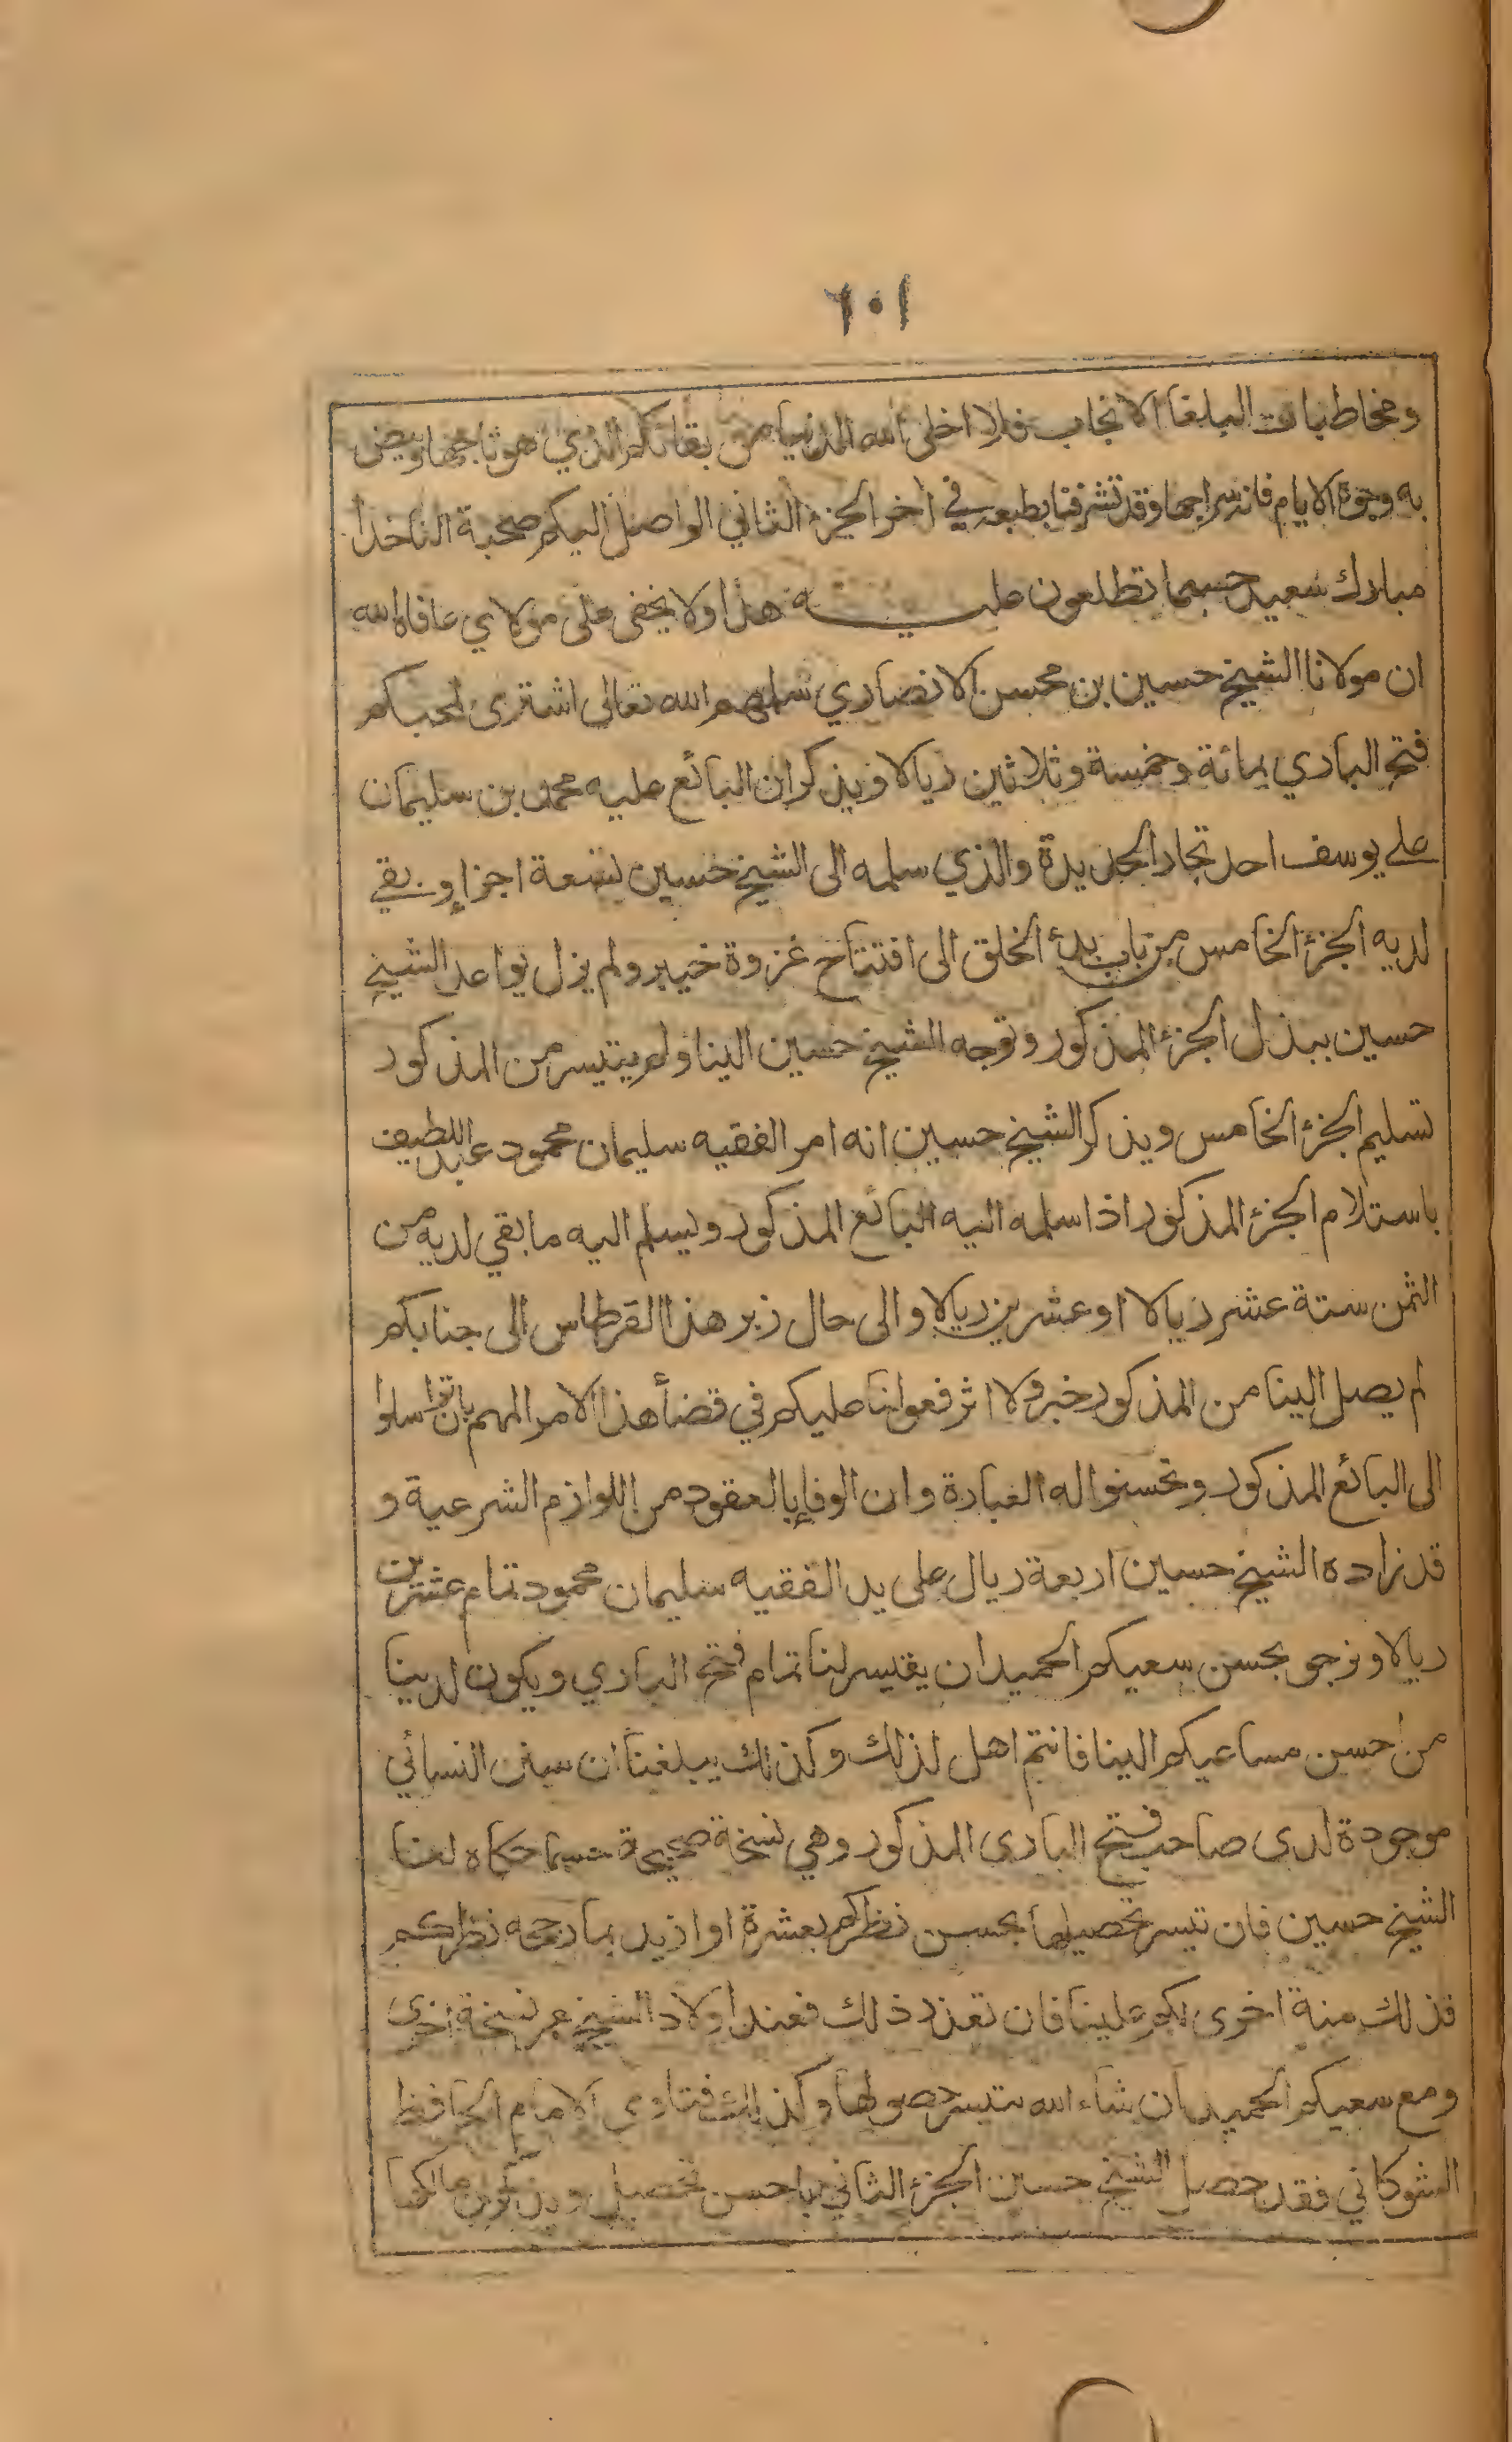 ١٠٦
ومخاطبات البلغا الانجاب فلا اخلى الله الدنيا من بقائكم الذي هو تاجها وبيض
به وجوه الايام فانه سراجها وقد تشرفنا بطبعه في اخر الجزء الثاني الواصل اليكم صحبة الناخدا
مبارك سعيد حسبما تطلعون عليه هذا ولا يخفى على مولاي عافاه الله
ان مولانا الشيخ حسين بن محسن الانصاري سلمهم الله تعالى اشترى لمحبكم
فتح الباري بمائة وخمسة وثلاثين ريالا ويذكر ان البائع عليه محمد بن سليمان
علي يوسف احد تجار الحديدة والذي سلمه الى الشيخ حسين تسعة اجزاء وبقي
لديه الجزء الخامس من باب بدأ الخلق الى افتتاح غزوة خيبر ولم يزل يواعد الشيخ
حسين ببذل الجزء المذكور وتوجه الشيخ حسين الينا ولم يتيسر من المذكور
تسليم الجزء الخامس ويذكر الشيخ حسين انه امر الفقيه سليمان محمود عبد اللطيف
باستلام الجزء المذكور اذا سلمه اليه البائع المذكور وليسلم اليه ما بقي لديه من
الثمن ستة عشر ريالا او عشرين ريالا والى حال زبر هذا القرطاس الى جنابكم
لم يصل الينا من المذكور خبر ولا اثر فعولنا عليكم في قضأ هذا الامر المهم بان تراسلوا
الى البائع المذكور وتحسنوا له العبارة وان الوفاء بالعقود من اللوازم الشرعية و
قد زاده الشيخ حسين اربعة ريال على يد الفقيه سليمان محمود تمام عشرين
ريالا ونرجو بحسن سعيكم الحميد ان يتيسر لنا تمام فتح الباري ويكون لدينا
من احسن مساعيكم الينا فانتم اهل لذلك وكذلك يبلغنا ان سنن النسائي
موجودة لدى صاحب فتح الباري المذكور وهي نسخة صحيحة حسبما حكاه لنا
الشيخ حسين فان تيسر تحصيلها بحسن نظركم بعشرة او ازيد بما رجحه نظركم
فذلك منة اخرى لكم علينا فان تعذر ذلك فعند اولاد الشيخ عمر نسخة اخرى
ومع سعيكم الحميد ان شاء الله يتيسر حصولها وكذلك فتاوى الامام الحافظ
الشوكاني فقد حصل الشيخ حسين الجزء الثاني باحسن تحصيل